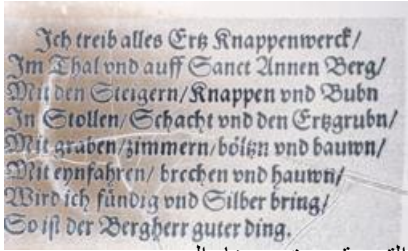 Ich treib alles Ertz Knappenwerck/
Im Thal vnd auff Sanct Annen Berg/
Mit den Steigern/Knappen vnd Bubn
In Stollen/Schacht vnd den Ertzgrubn/
Mit graben/zimmern/böltzn vnd bauwn/
Mit eynfahren/ brechen vnd hauwn/
Wird ich fündig vnd Silber bring/
So ist der Bergherr guter ding.